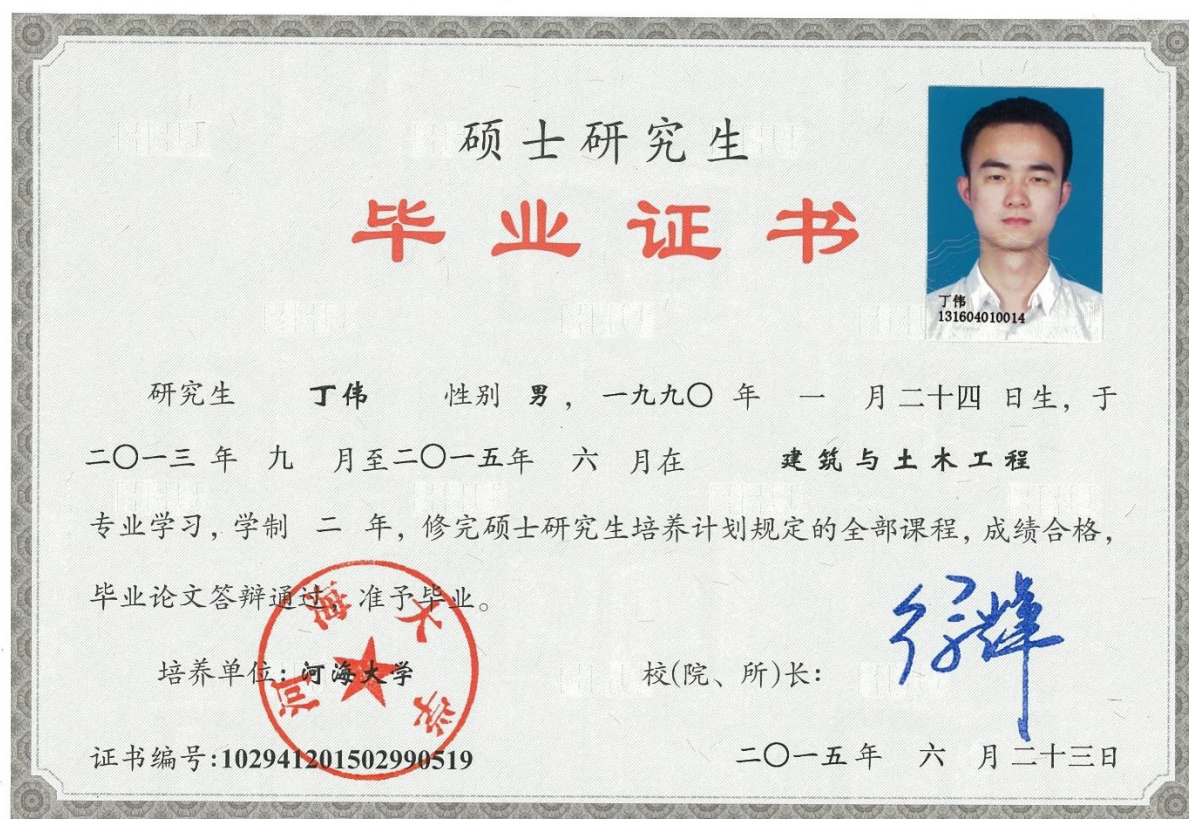 硕士研究生
毕业证书
丁伟
131604010014
研究生 丁伟 性别 男, 一九九〇 年 一 月二十四 日生, 于
二〇一三 年 九 月至二〇一五年 六 月在 建筑与土木工程
专业学习, 学制 二 年, 修完硕士研究生培养计划规定的全部课程, 成绩合格,
毕业论文答辩通过, 准予毕业。
培养单位: 河海大学
校(院、所)长:
河海大学
证书编号:102941201502990519
二〇一五年 六 月二十三日